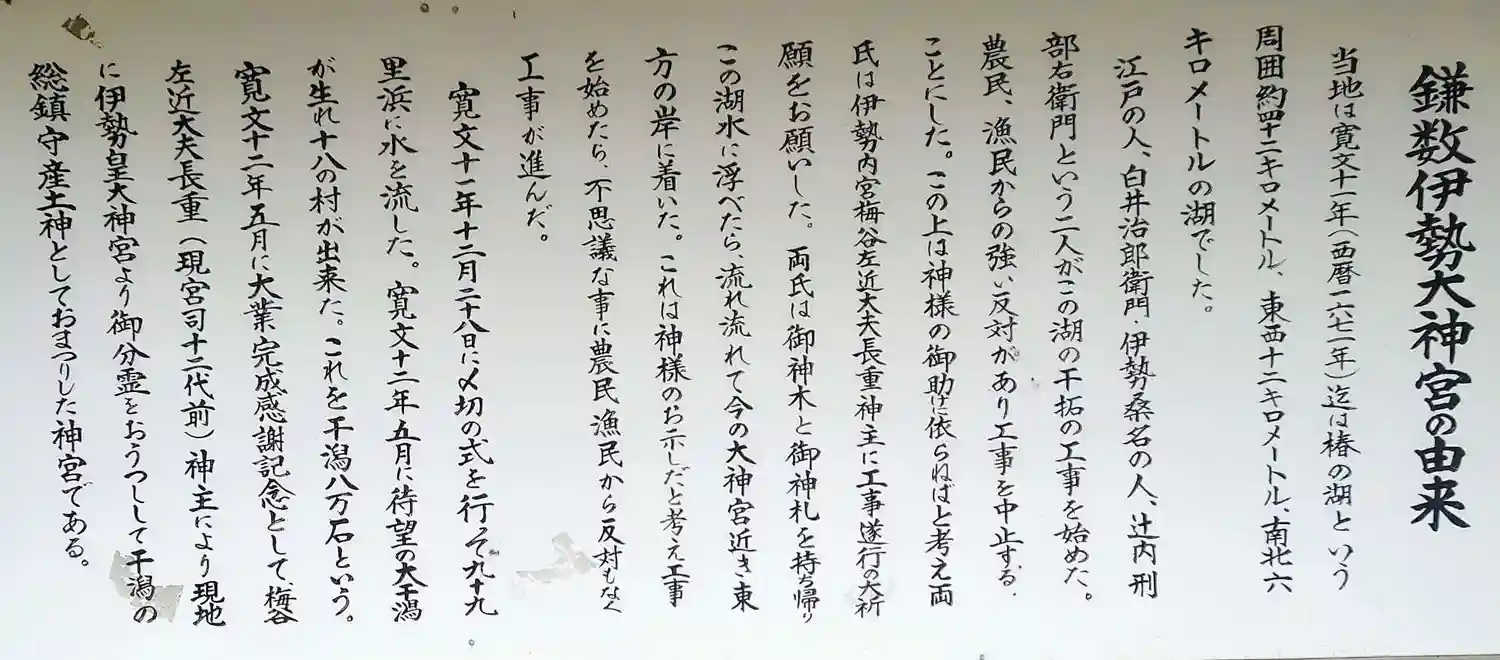 鎌数伊勢大神宮の由来
当地は寛文十一年(西暦一六七一年)迄は椿の湖という
周囲約四十二キロメートル、東西十二キロメートル、南北六
キロメートルの湖でした。
江戸の人、白井治郎衛門・伊勢桑名の人、辻内刑
部右衛門という二人がこの湖の干拓の工事を始めた。
農民、漁民からの強い反対があり工事を中止する.
ことにした。この上は神様の御助けに依らねばと考え両
氏は伊勢内宮梅谷左近大夫長重神主に工事遂行の大祈
願をお願いした。両氏は御神木と御神札を持ち帰り
この湖水に浮べたら、流れ流れて今の大神宮近き東
方の岸に着いた。これは神様のお示しだと考え工事
を始めたら、不思議な事に農民漁民から反対もなく
工事が進んだ。
寛文十一年十二月二十八日に〆切の式を行って九十九
里浜に水を流した。寛文十二年五月に待望の大干潟
が生れ十八の村が出来た。これを干潟八万石という。
寛文十二年五月に大業完成感謝記念として、梅谷
左近大夫長重(現宮司十二代前)神主により現地
に伊勢皇大神宮より御分霊をおうつしして干潟の
総鎮守産土神としておまつりした神宮である。